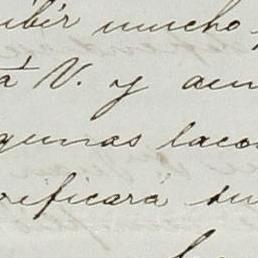 ibir mucho
á V. y aun
gunas laco
rificará su